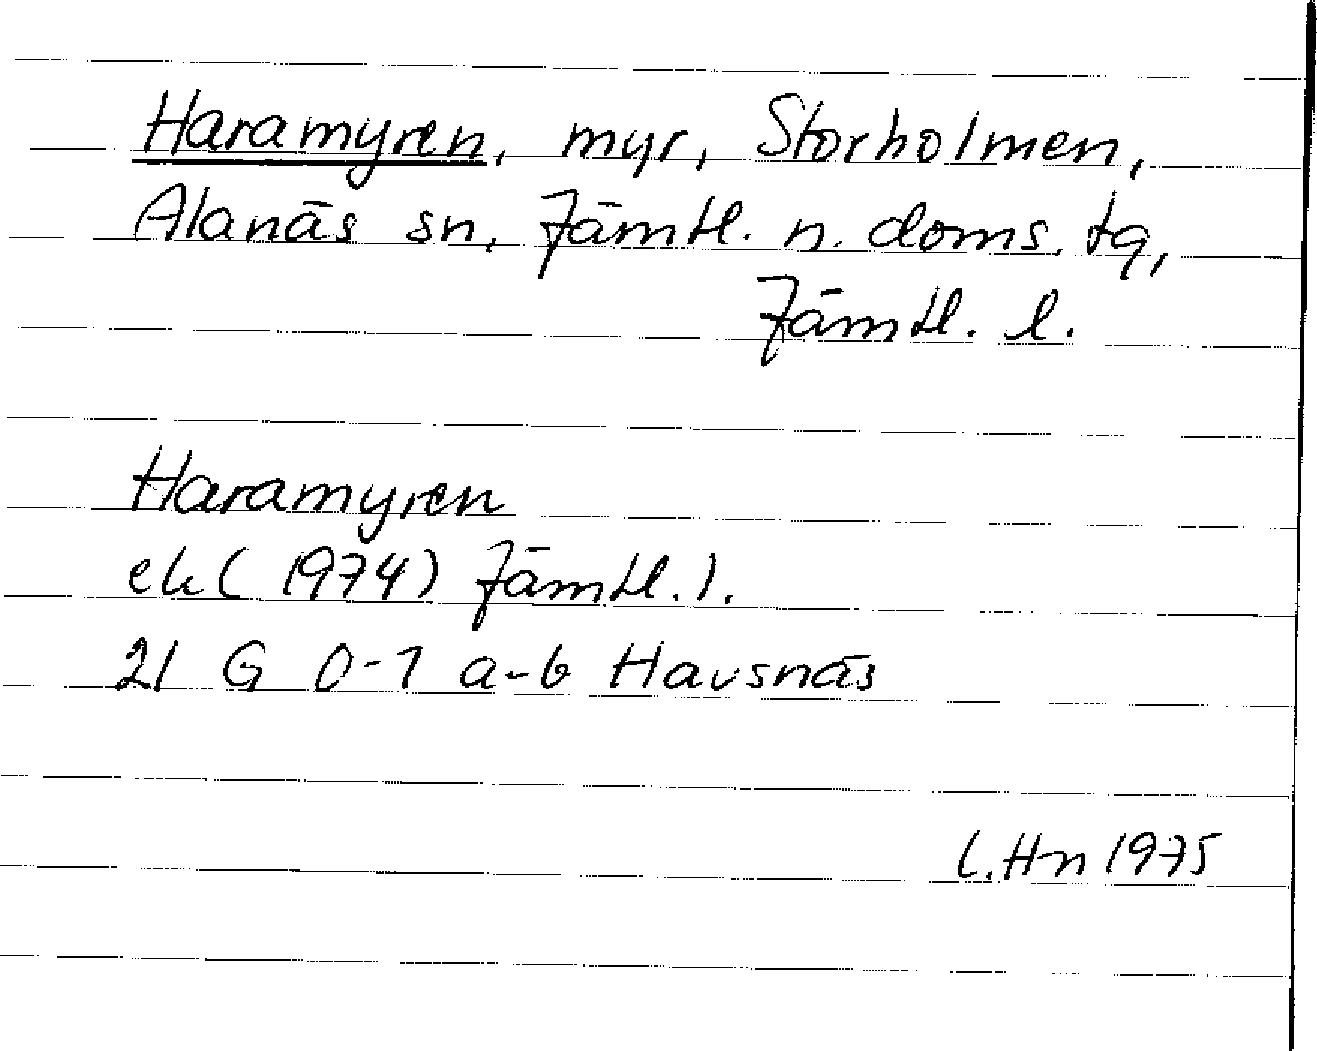 Haramyren, myr, Storholmen,
Alanäs sn, Jämtl. n. doms. tg,
Jämtl. l.
Haramyren
ek (1974) Jämtl. l.
21 G 0-1 a-b Havsnäs
L.Hn 1975